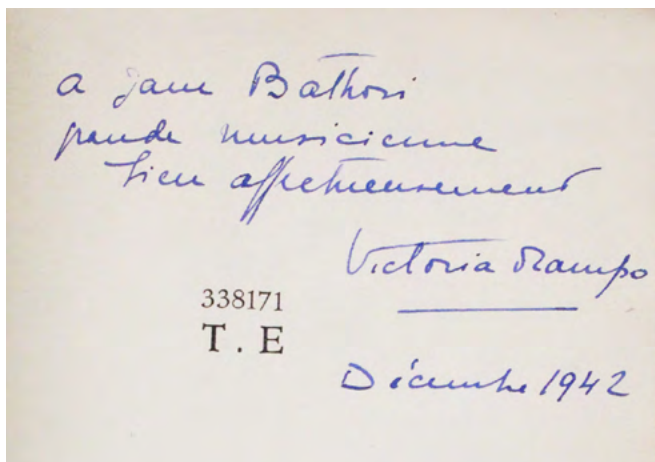 a Jane Bathori
grande musicienne
bien affectueusement
Victoria Ocampo
338171
T . E
Décembre 1942